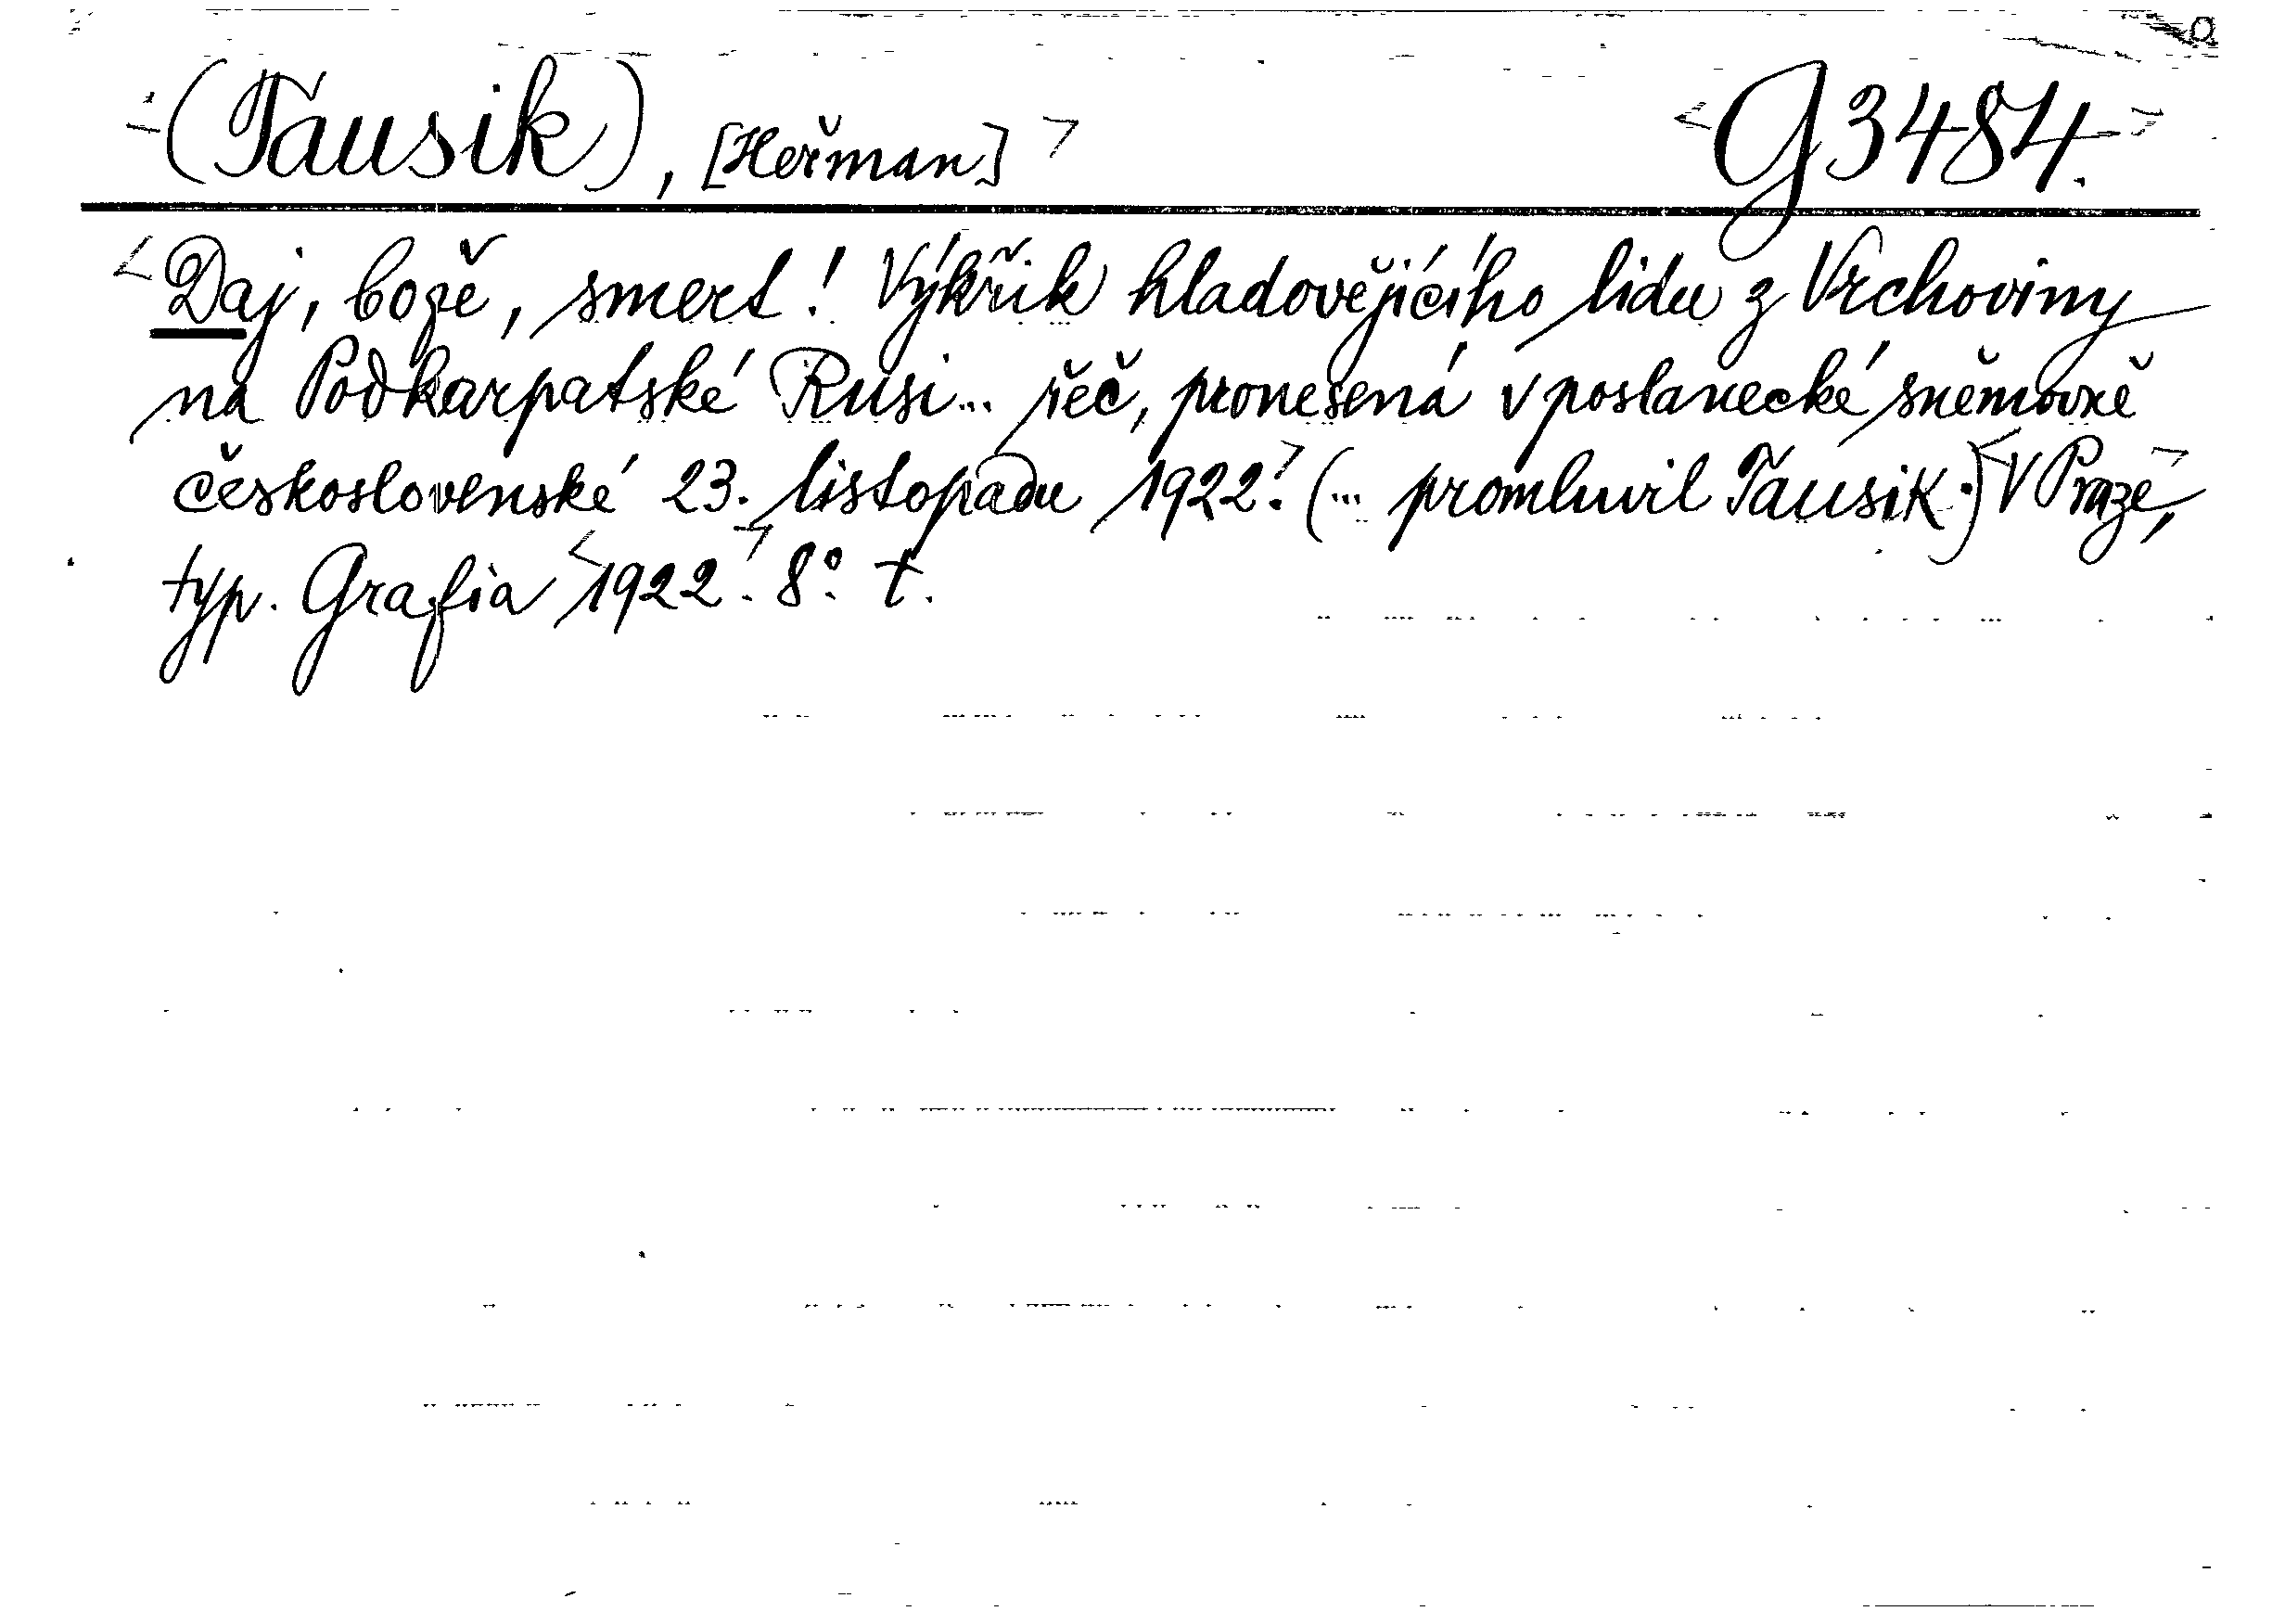 (Tausik), [Heřman] G 3484.
Daj, bože, smert! Výkřik hladovějícího lidu z Vrchoviny
na Podkarpatské Rusi... řeč, pronešená v poslanecké sněmovně
československé 23. listopadu 1922. (... promluvil Tausik.) V Praze,
typ. Grafia 1922. 8°. t.